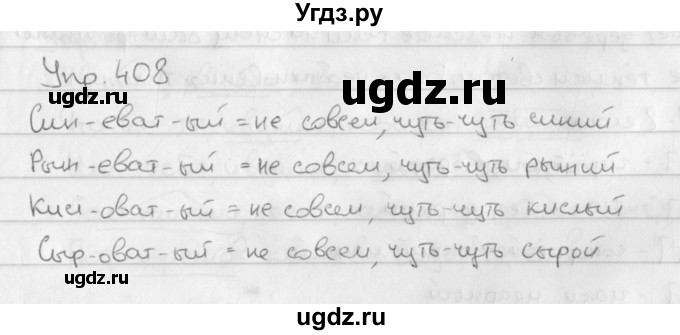 Угдз.ру
Упр. 408
ugdz.ru
Син-еват-ый = не совсем, чуть-чуть синий
Рын-еват-ый = не совсем, чуть-чуть рыний
Кисл-оват-ый = не совсем, чуть-чуть кислый
Сыр-оват-ый = не совсем, чуть-чуть сырой
ugdz.ru
ugdz.ru